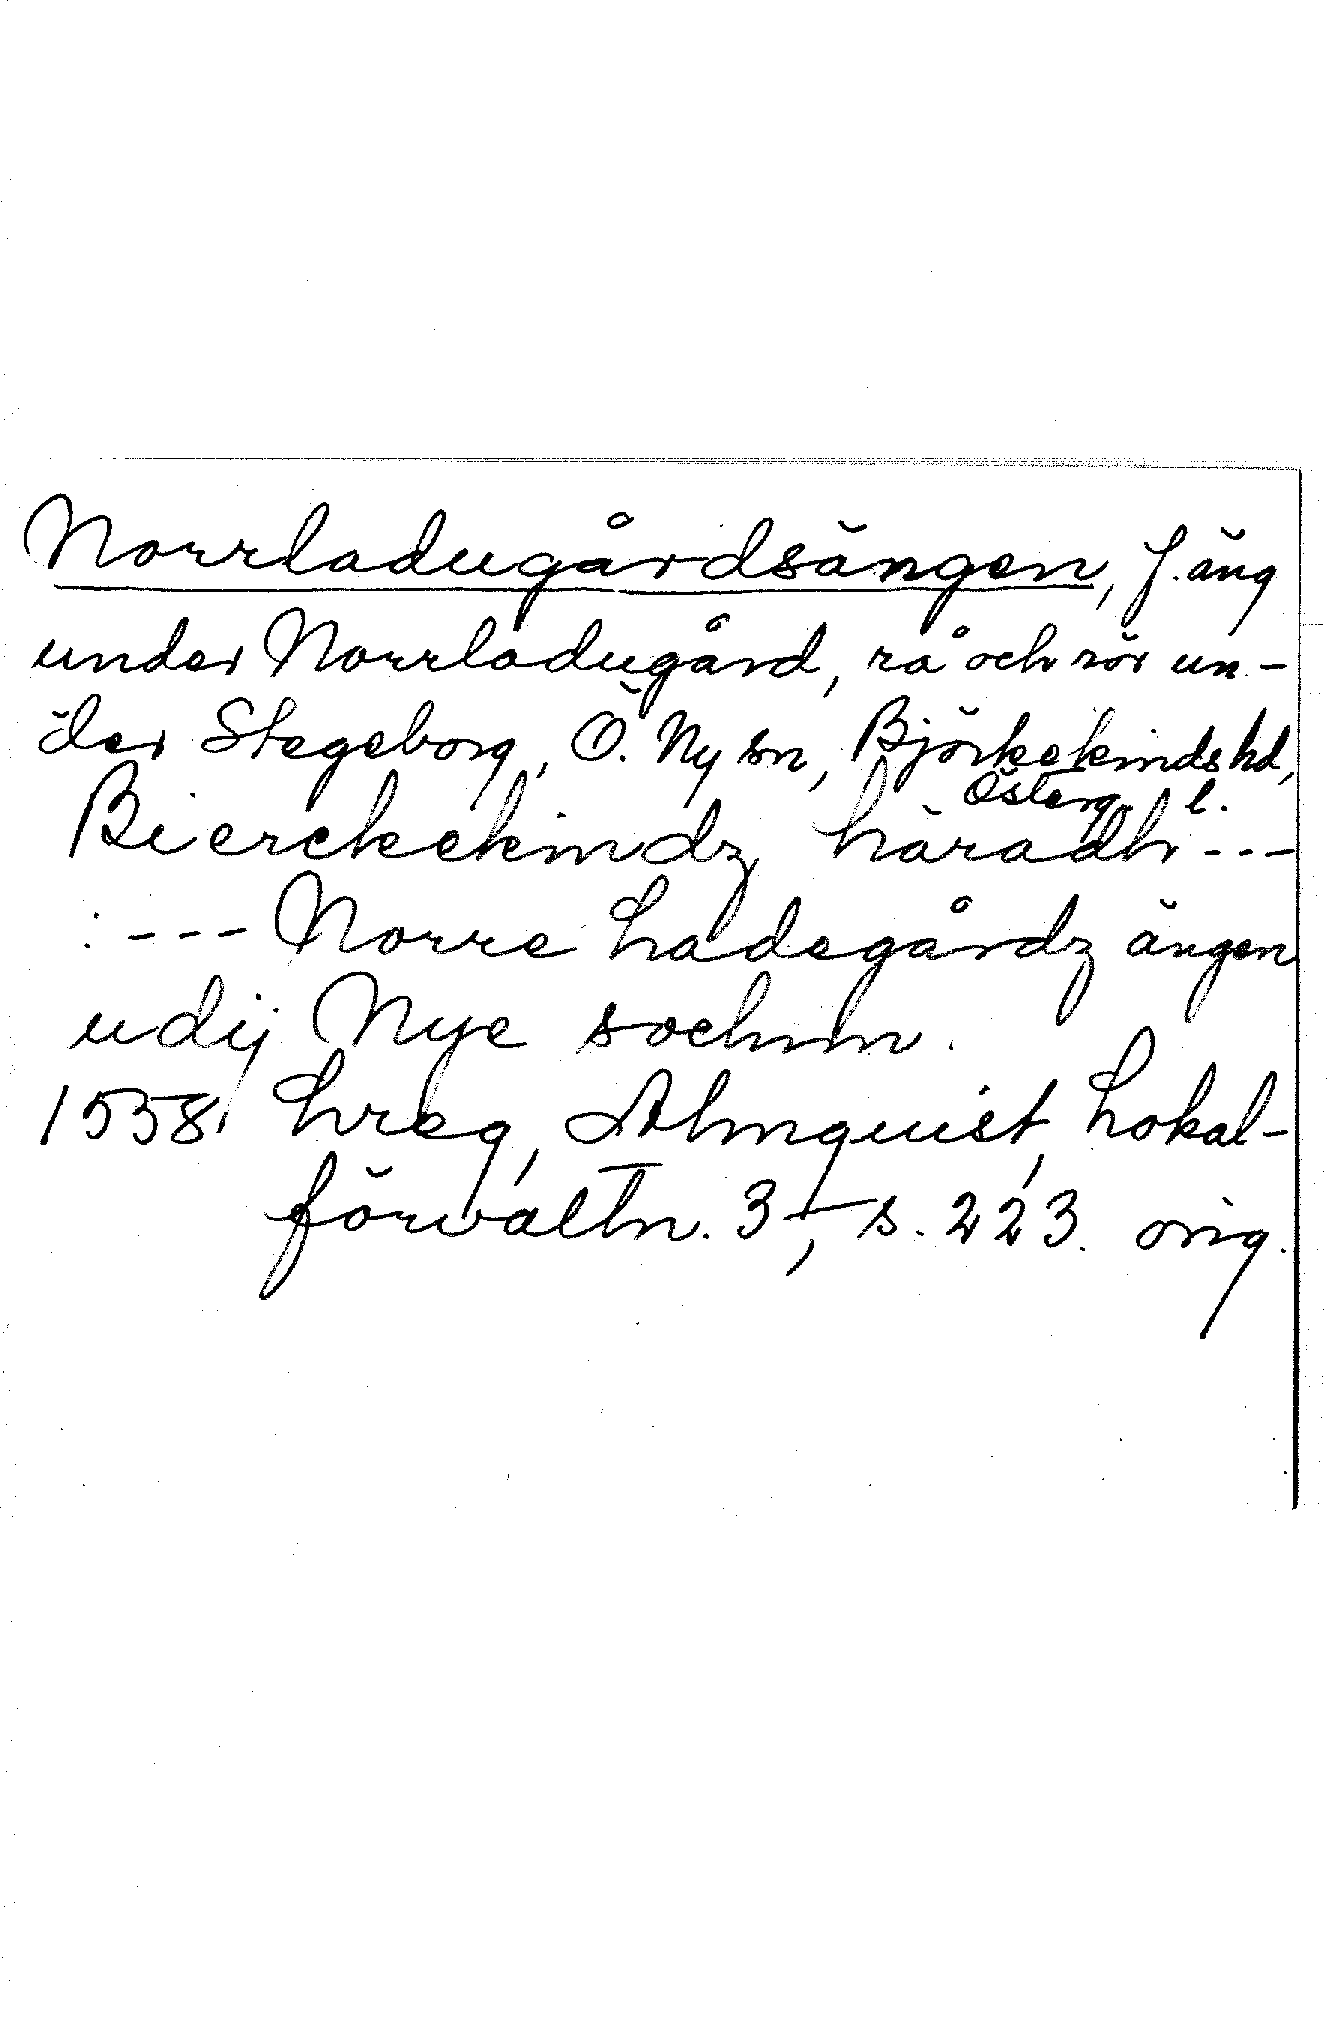 Norrladugårdsängen, f. äng
under Norrladugård, rå och rör un-
der Stegeborg, Ö. Ny sn, Björkekinds hd,
Österg. l.
Bierckekindz häradh ---
: --- Norre Ladegårdz ängen
udij Nye sochnn.
1558. Lreg, Almquist, Lokal-
förvaltn. 3, s. 223. orig.